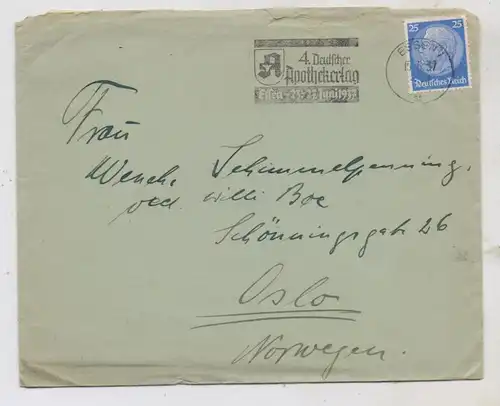 4. Deutscher
Apothekertag
Essen
Juni 1937
ESSEN
37
25 25
Deutsches Reich
Frau
Wenche Schimmelpenning,
ved. Willi Boe
Schönningsgate 26
Oslo
Norwegen.